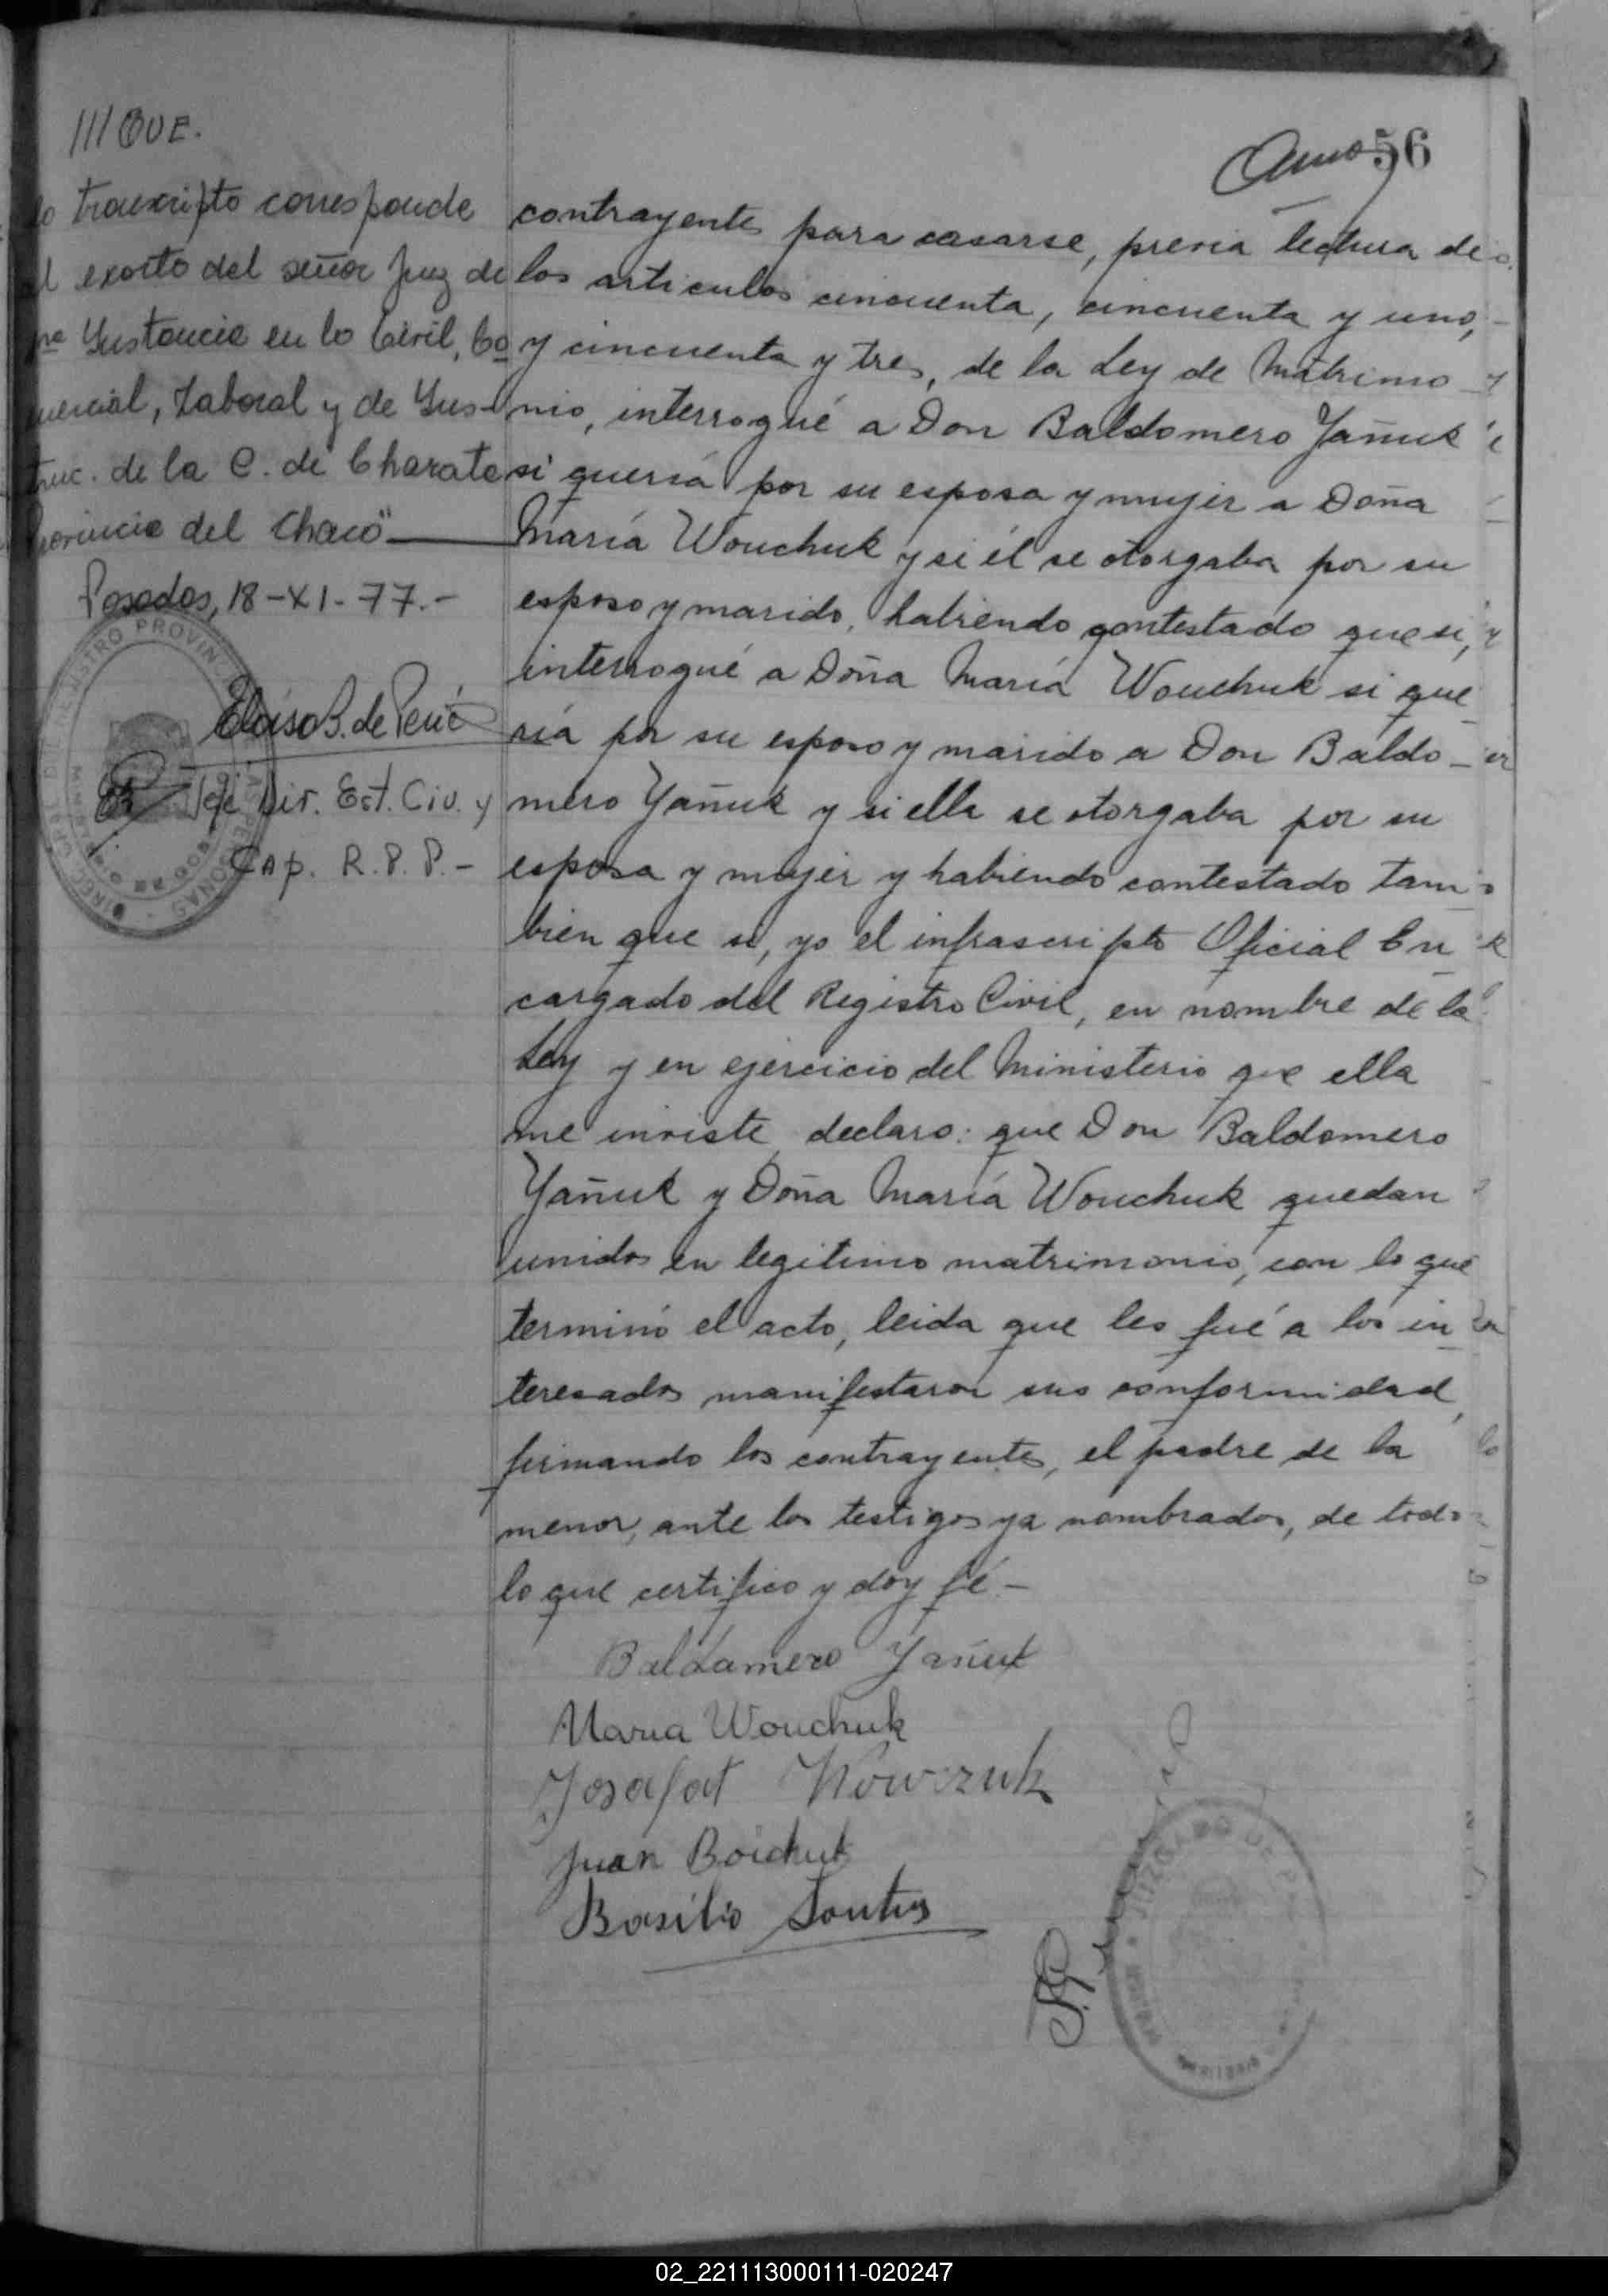 III QUE.
lo transcripto corresponde
al exorto del señor Juez de
1ra Instancia en lo Civil, Co
mercial, Laboral y de Ins-
truc. de la C. de Charata
Provincia del Chaco"
Posadas, 18-XI-77.-
Jefe Dir. Est. Civ. y
Cap. R. P. P.-
56
contrayentes para casarse, previa lectura de
los articulos cincuenta, cincuenta y uno,
y cincuenta y tres, de la Ley de Matrimo
nio, interrogué a Don Baldomero Yañuk
si quería por su esposa y mujer a Doña
María Wouchuk y si él se otorgaba por su
esposo y marido, habiendo contestado que si,
interrogué a Doña María Wouchuk si que
ría por su esposo y marido a Don Baldo
mero Yañuk y si ella se otorgaba por su
esposa y mujer y habiendo contestado tam
bien que si, yo el infrascripto Oficial En
cargado del Registro Civil, en nombre de la
Ley y en ejercicio del Ministerio que ella
me inviste, declaro: que Don Baldomero
Yañuk y Doña María Wouchuk quedan
unidos en legitimo matrimonio, con lo que
terminó el acto, leida que les fué a los in
teresados manifestaron sus conformidad,
firmando los contrayentes, el padre de la
menor, ante los testigos ya nombrados, de todo
lo que certifico y doy fé -
Baldamero Yañuk
Maria Wouchuk
Josafat Wowczuk
Juan Boichuk
Basilio
02_221113000111-020247